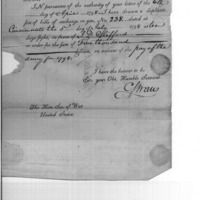 IN pursuance of the authority of your letter of the 6th
day of April 1798 have drawn a duplicate
set of bills of exchange on you, No. 238. dated at
Cincinnati the 5th day of July 1798 at ten
days sight, in favor of
or order for the sum of Five thousand
dollars, on account of the pay of the
Army for 1798.
I have the honour to be
Sir, your Obt. Humble Servant
The Hon. Sec. of War
United States